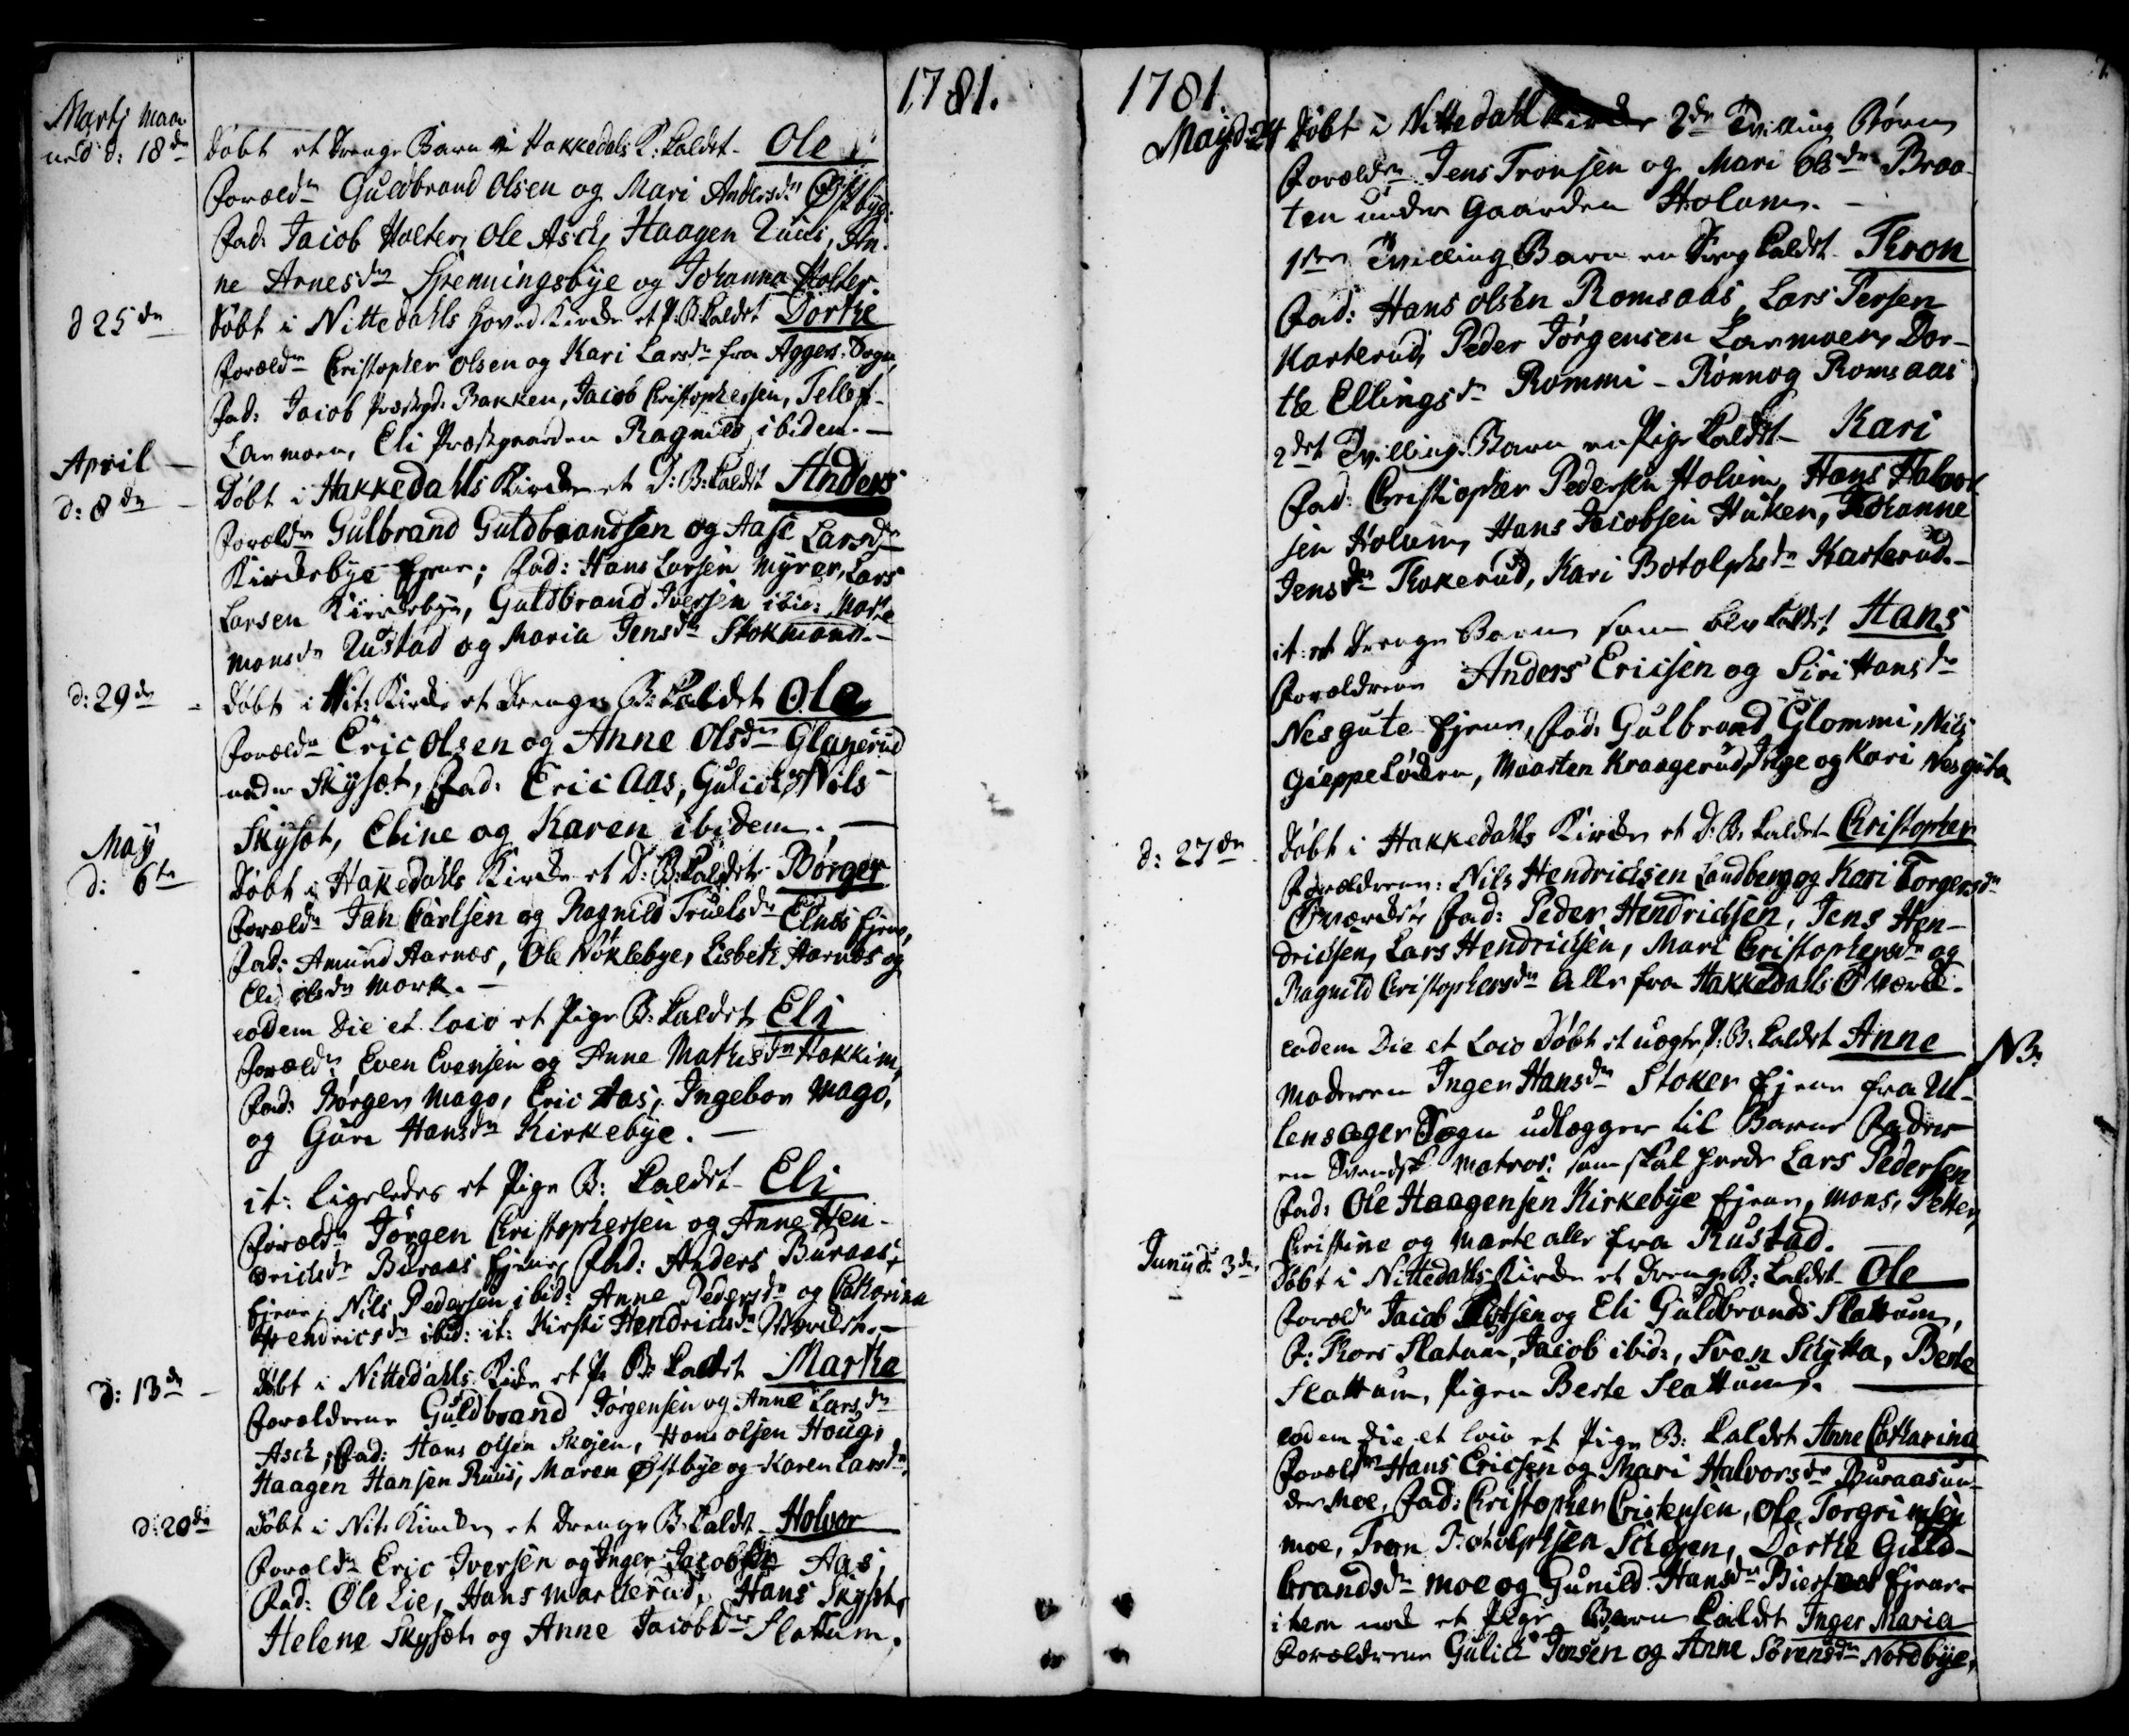 1781.
Martj Maa-
ned d: 18de
Døbt et Drenge Barn i Hakkedals K: kaldet Ole
Foræld: Guldbrand Olsen og Mari Andersdr Østbye
Fad: Jacob Holter, Ole Asch, Haagen Ruus, An-
ne Arnesdr Spenningsbye og Johanna Holter.
d 25de
Døbt i Nittedahls Hoved Kirke et P: B: kaldet Dorthe
Foræld: Christopher Olsen og Kari Larsdr fra Aggers Sogn,
Fad: Jacob Præstgd: Bakken, Jacob Christophersen, Tellef
Lanmoen, Eli Præstgaarden Ragnild ibidem.
April
d: 8de
Døbt i Hakkedahls Kirke et D: B: kaldet Anders
Foræld: Gulbrand Guldbrandsen og Aase Larsdr
Kirkebye Ejene; Fad: Hans Larsen Myrer, Lars
Larsen Kirkebye, Guldbrand Iversen ibid: Marte
Monsdr Rustad og Maria Jensdr Stokmand.
d: 29de
Døbt i Nit: Kirke et Drenge B: kaldet Ole
Foræld: Eric Olsen og Anne Olsdr Glaserud
under Skysæt, Fad: Eric Aas, Gulich Nils
Skysæt, Eline og Karen ibidem.
May
d: 6te
Døbt i Hakedahls Kirke et D: B: kaldet Børger
Foræld: Jan Carlsen og Ragnild Truelsdr Elnes Ejene,
Fad: Amund Aarnæs, Ole Nøklebye, Lisbeth Aarnæs og
Eli Olsdr Mork.
eodem Die et Loco et Pige B: kaldet Eli
Foræld: Even Evensen og Anne Mathisdr Hakkim,
Fad: Børger Mago, Eric Aas, Ingebor Mago,
og Guri Hansdr Kirkebye.
it: ligeledes et Pige B: kaldet Eli
Foræld: Jørgen Christophersen og Anne Hen-
drichsdr Buraas Ejene, Fad: Anders Buraas
Ejene, Nils Pedersen ibid: Anne Pedersdr og Catharina
Hendricsdr ibid: it: Kirsti Hendrichsdr
d: 13de
Døbt i Nittedahls Kirke et P: B: kaldet Martha
Forældrene Guldbrand Jørgensen og Anne Larsdr
Asch, Fad: Hans Olsen Skøjen, Hans Olsen Houg,
Haagen Hansen Ruus, Maren Østbye og Karen Larsdr
d: 20de
Døbt i Nit: Kirke et Drenge B: kaldet Holvor
Foræld: Eric Iversen og Inger Jacobsdr Aas,
Fad: Ole Lie, Hans Markerud, Hans Skysæt,
Helene Skysæt og Anne Jacobsdr Slattum.
1781.
May d: 24
Døbt i Nittedahl Kirke 2de Tvilling Børn
Foræld: Jens Tronsen og Mari Olsdr Braa-
ten under Gaarden Holum.
1ste Tvilling Barn en Dreng kaldet Thron
Fad: Hans Olsen Romsaas, Lars Persen
Karterud, Peder Jørgensen Lanmoen, Dor-
the Ellingsdr Rommi - Rønnog Romsaas
2det Tvilling Barn en Pige kaldet Kari
Fad: Christopher Pedersen Holum, Hans Halvor-
sen Holum, Hans Jacobsen Haken, Johanne
Jensdr Thokerud, Kari Botolphsdr Karterud.
it: et Drenge Barn som blev kaldet Hans
Forældrene Anders Ericsen og Siri Hansdr
Nesgute Ejene, Fad: Gulbrand Glommi, Nils
Gieppeløkken, Maarten Kraagerud, Inge og Kari Nesguta
d: 27de
Døbt i Hakkedahls Kirke et D: B: kaldet Christopher
Forældrene: Nils Hendrichsen Landberg og Kari Torgersdr
Fad: Peder Hendrichsen, Jens Hen-
drichsen, Lars Hendrichsen, Mari Christophersdr og
Ragnild Christophersdr alle fra Hakkedahls
eodem Die et Loco Døbt et uægte P: B: kaldet Anne
NB:
Moderen Inger Hansdr Stoker Ejene fra Ul-
lensager Sogn udlægger til Barne Fader
en Svensk Matros: som skal heede Lars Pedersen
Fad: Ole Haagensen Kirkebye Ejene, Mons, Petter,
Christine og Marte alle fra Rustad.
Junij d: 3de
Døbt i Nittedahls Kirke et Drenge B: kaldet Ole
Foræld: Jacob og Eli Guldbrands Slattum,
F: Thore Slatum, Jacob ibid:, Sven Schytta, Berte
Slattum, Pigen Berte Slattum.
eodem Die et loco et Pige B: kaldet Anne Catharina
Foræld: Hans Ericsen og Mari Halvorsdr Buraas un-
der Moe, Fad: Christopher Christensen, Ole Torgrimsen
Moe, Tron Botholphsen Schøjen, Dorthe Guld-
brandsdr Moe og Gunild Hansdr Ejene
item nok et Pige Barn kaldet Inger Maria
Forældrene Gulich Jensen og Anne Sørensdr Nordbye,